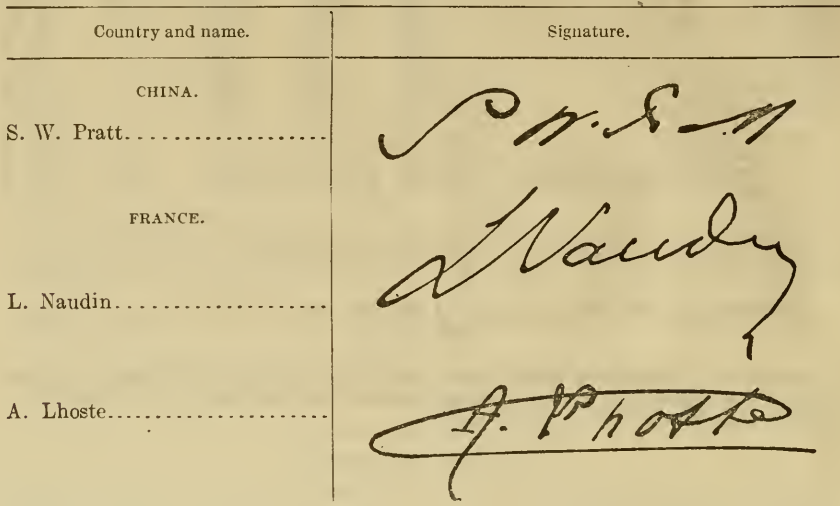 Country and name. Signature.
CHINA.
S. W. Pratt.................... S. W. Pratt
FRANCE.
L. Naudin.................... L Naudin
A. Lhoste.................... A. Lhoste